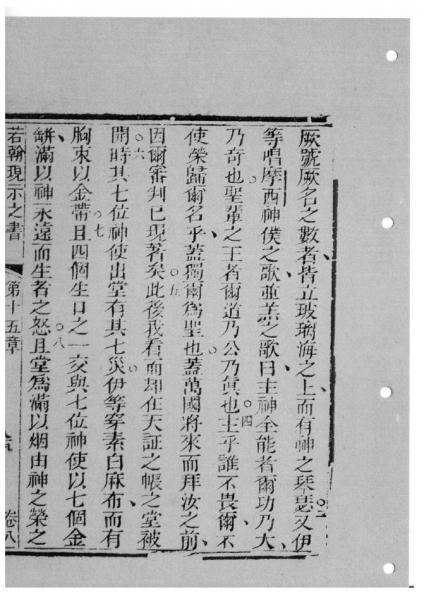 厥號厥名之數者皆立玻璃海之上而有神之琴瑟○三又伊
等唱摩西神僕之歌並羔之歌曰主神全能者爾功乃大
乃奇也聖輩之王者爾道乃公乃真也○四主乎誰不畏爾不
使榮歸爾名乎蓋獨爾為聖也蓋萬國將來而拜汝之前
因爾審判已現著矣○五此後我看而卻在天証之帳之堂被
開時○六其七位神使出堂有其七災伊等穿素白麻布而有
胸束以金帶○七且四個生口之一交與七位神使以七個金
缾滿以神永遠而生者之怒○八且堂為滿以烟由神之榮之
若翰現示之書 第十五章 卷八